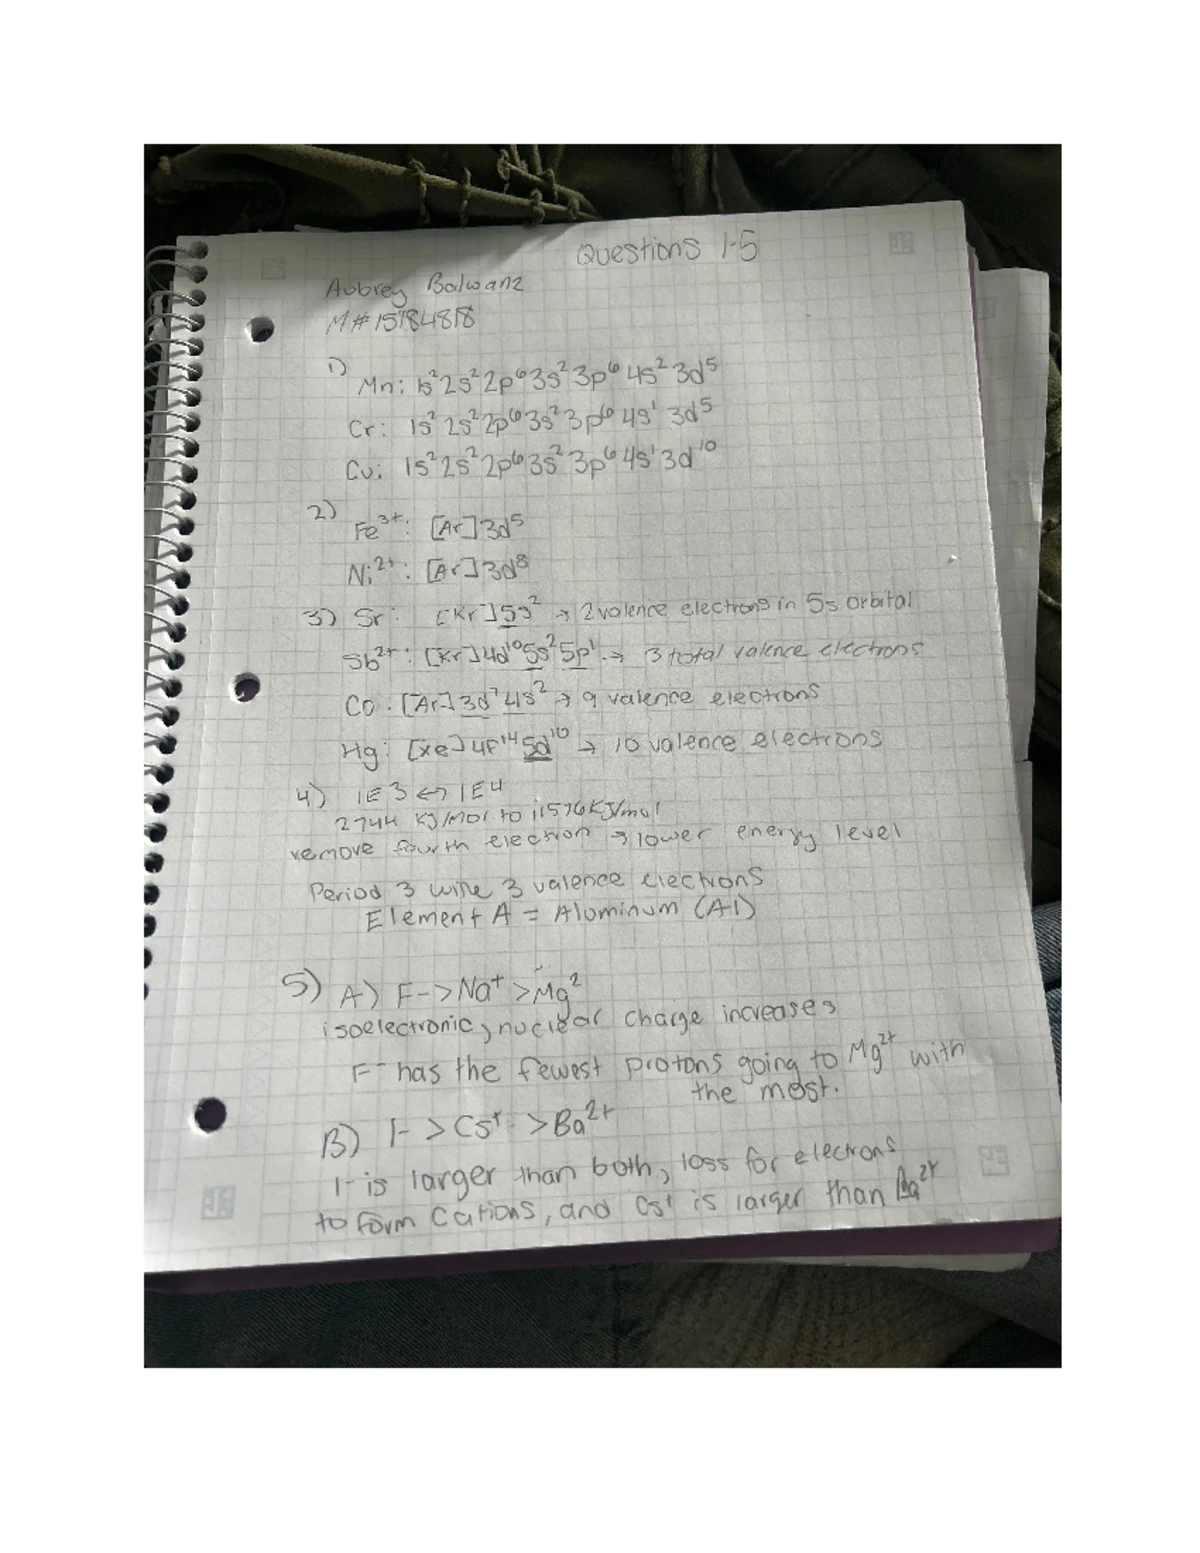 Questions 1-5
Aubrey Balwanz
M# 15784818
1)
Mn: 1s² 2s² 2p⁶ 3s² 3p⁶ 4s² 3d⁵
Cr: 1s² 2s² 2p⁶ 3s² 3p⁶ 4s¹ 3d⁵
Cu: 1s² 2s² 2p⁶ 3s² 3p⁶ 4s¹ 3d¹⁰
2)
Fe³⁺: [Ar] 3d⁵
Ni²⁺: [Ar] 3d⁸
3) Sr: [Kr] 5s² → 2 valence electrons in 5s orbital
Sb²⁺: [Kr] 4d¹⁰ 5s² 5p¹ → 3 total valence electrons
Co: [Ar] 3d⁷ 4s² → 9 valence electrons
Hg: [Xe] 4f¹⁴ 5d¹⁰ → 10 valence electrons
4) IE3 ↔ IE4
2744 KJ/mol to 11576 KJ/mol
remove fourth electron → lower energy level
Period 3 with 3 valence electrons
Element A = Aluminum (Al)
5) A) F- > Na⁺ > Mg²
isoelectronic, nuclear charge increases
F⁻ has the fewest protons going to Mg²⁺ with
the most.
B) I- > Cs⁺ > Ba²⁺
I- is larger than both, loss for electrons
to form cations, and Cs⁺ is larger than Ba²⁺